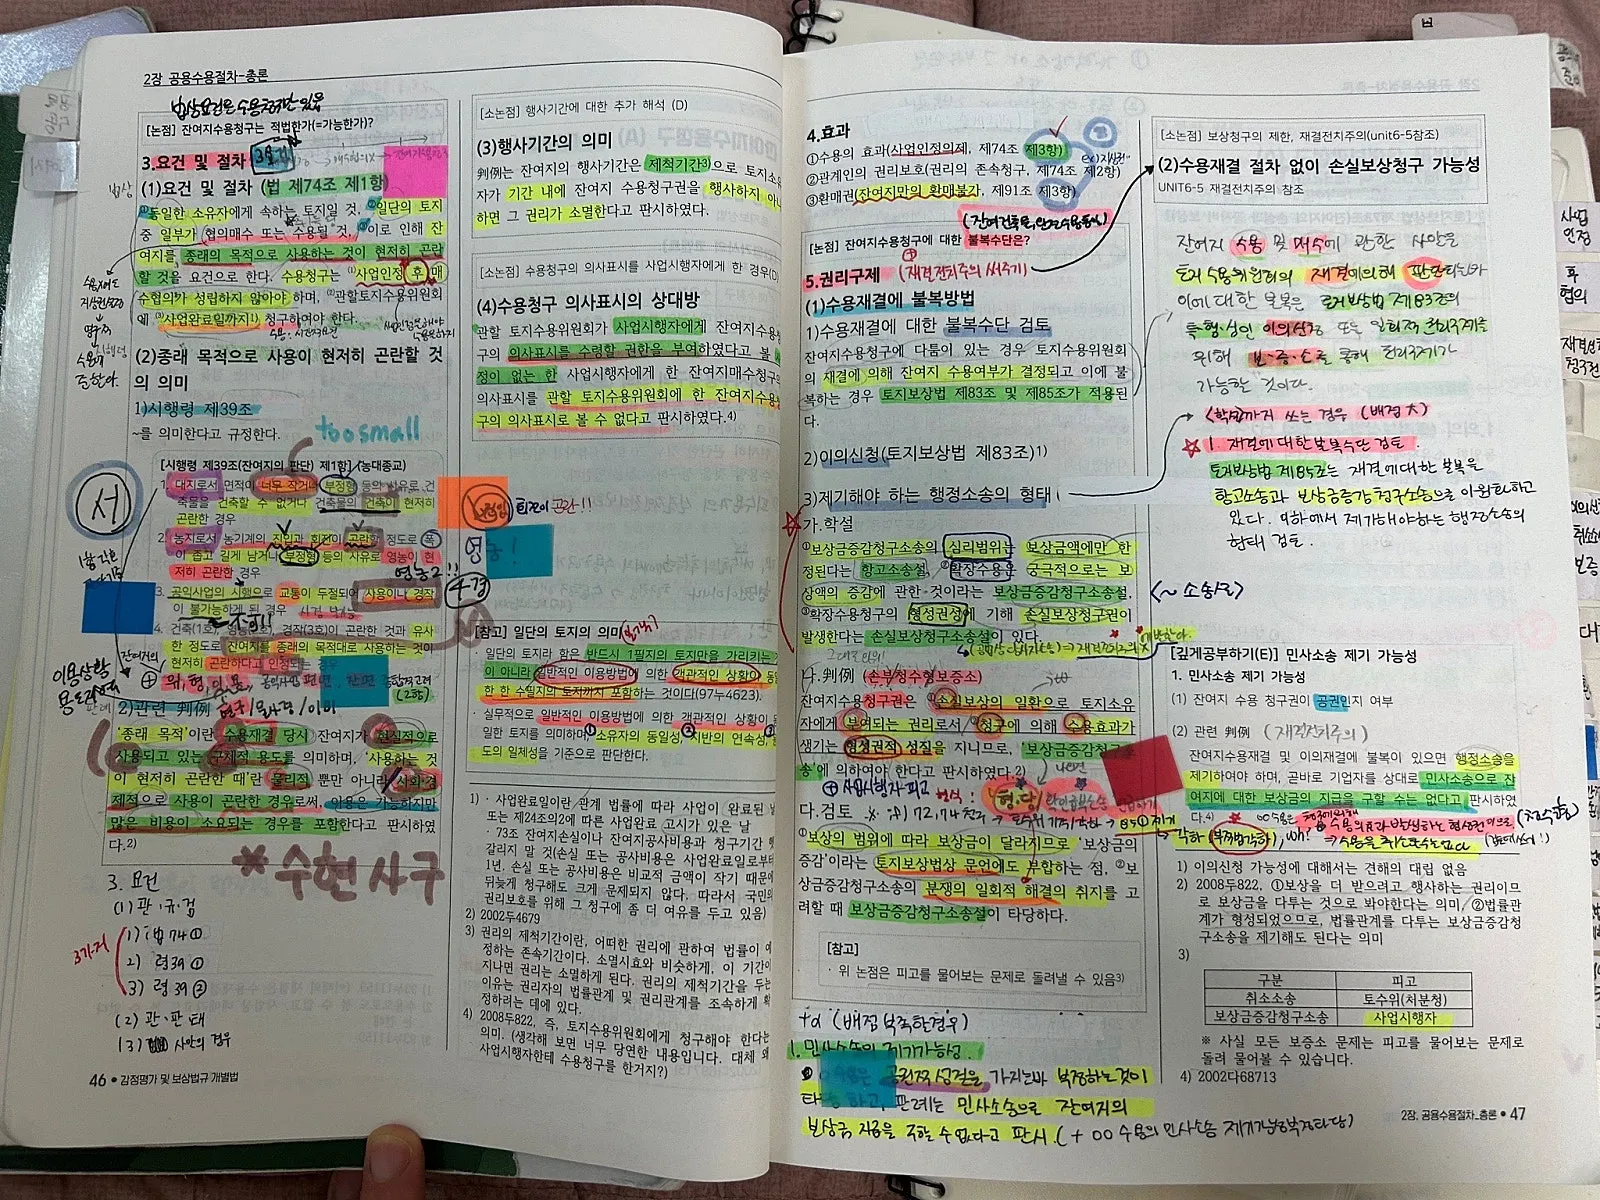 2장 공용수용절차-총론
[논점] 잔여지수용청구는 적법한가(=가능한가)?
3.요건 및 절차
(1)요건 및 절차 (법 제74조 제1항)
①동일한 소유자에게 속하는 토지일 것, ②일단의 토지
중 일부가 협의매수 또는 수용될 것, 이로 인해 잔
여지를 종래의 목적으로 사용하는 것이 현저히 곤란
할 것을 요건으로 한다. 수용청구는 ①사업인정 후 매
수협의가 성립하지 않아야 하며, ②관할토지수용위원회
에 ③사업완료일까지1) 청구하여야 한다.
(2)종래 목적으로 사용이 현저히 곤란할 것
의 의미
1)시행령 제39조
~를 의미한다고 규정한다.
too small
[시행령 제39조(잔여지의 판단) 제1항] (농대종교)
1. 대지로서 면적이 너무 작거나 부정형 등의 사유로 건
축물을 건축할 수 없거나 건축물의 건축이 현저히
곤란한 경우
2. 농지로서 농기계의 진입과 회전이 곤란할 정도로 폭
이 좁고 길게 남거나 부정형 등의 사유로 영농이 현
저히 곤란한 경우
3. 공익사업의 시행으로 교통이 두절되어 사용이나 경작
이 불가능하게 된 경우
4. 건축(1호), 영농(2호), 경작(3호)이 곤란한 것과 유사
한 정도로 잔여지를 종래의 목적대로 사용하는 것이
현저히 곤란하다고 인정되는 경우
서
이용상황
2)관련 判例
'종래 목적'이란 수용재결 당시 잔여지가 현실적으로
사용되고 있는 구체적 용도를 의미하며, '사용하는 것
이 현저히 곤란한 때'란 물리적 뿐만 아니라 사회·경
제적으로 사용이 곤란한 경우로써, 이용은 가능하지만
많은 비용이 소요되는 경우를 포함한다고 판시하였
다.2)
*수현사구
3. 요건
(1) 관·규·검
3가지
1) 법 74①
2) 령39①
3) 령39②
(2) 관·판·태
(3) 사안의 경우
46 • 감정평가 및 보상법규 개별법
[소논점] 행사기간에 대한 추가 해석 (D)
(3)행사기간의 의미
判例는 잔여지의 행사기간은 제척기간3)으로 토지소유
자가 기간 내에 잔여지 수용청구권을 행사하지 아니
하면 그 권리가 소멸한다고 판시하였다.
[소논점] 수용청구의 의사표시를 사업시행자에게 한 경우(D)
(4)수용청구 의사표시의 상대방
관할 토지수용위원회가 사업시행자에게 잔여지수용청
구의 의사표시를 수령할 권한을 부여하였다고 볼
정이 없는 한 사업시행자에게 한 잔여지매수청구의
의사표시를 관할 토지수용위원회에 한 잔여지수용
구의 의사표시로 볼 수 없다고 판시하였다.4)
영농!
4경
[참고] 일단의 토지의 의미
· 일단의 토지라 함은 반드시 1필지의 토지만을 가리키는
이 아니라 일반적인 이용방법에 의한 객관적인 상황이 동
한 한 수필지의 토지까지 포함하는 것이다(97누4623).
· 실무적으로 일반적인 이용방법에 의한 객관적인 상황이 동
일한 토지를 의미하며, ①소유자의 동일성, ②지반의 연속성,
도의 일체성을 기준으로 판단한다.
1) · 사업완료일이란 관계 법률에 따라 사업이 완료된 날
또는 제24조의2에 따른 사업완료 고시가 있은 날
· 73조 잔여지손실이나 잔여지공사비용과 청구기간
갈리지 말 것(손실 또는 공사비용은 사업완료일로부터
1년. 손실 또는 공사비용은 비교적 금액이 작기 때문에
뒤늦게 청구해도 크게 문제되지 않다. 따라서 국민의
권리보호를 위해 그 청구에 좀 더 여유를 두고 있음)
2) 2002두4679
3) 권리의 제척기간이란, 어떠한 권리에 관하여 법률이 예
정하는 존속기간이다. 소멸시효와 비슷하게, 이 기간이
지나면 권리는 소멸하게 된다. 권리의 제척기간을 두는
이유는 권리자의 법률관계 및 권리관계를 조속하게 확
정하려는 데에 있다.
4) 2008두822, 즉, 토지수용위원회에게 청구해야 한다는
의미. (생각해 보면 너무 당연한 내용입니다. 대체 왜
사업시행자한테 수용청구를 한거지?)
4.효과
①수용의 효과(사업인정의제, 제74조 제3항)
②관계인의 권리보호(권리의 존속청구, 제74조 제2항)
③환매권(잔여지만의 환매불가, 제91조 제3항)
[논점] 잔여지수용청구에 대한 불복수단은?
5.권리구제 (재결전치주의 써주기)
(1)수용재결에 불복방법
1)수용재결에 대한 불복수단 검토
잔여지수용청구에 다툼이 있는 경우 토지수용위원회
의 재결에 의해 잔여지 수용여부가 결정되고 이에 불
복하는 경우 토지보상법 제83조 및 제85조가 적용된
다.
2)이의신청(토지보상법 제83조)1)
3)제기해야 하는 행정소송의 형태
가.학설
①보상금증감청구소송의 심리범위는 보상금액에만 한
정된다는 항고소송설, ②확장수용은 궁극적으로는 보
상액의 증감에 관한 것이라는 보상금증감청구소송설,
③확장수용청구의 형성권성에 기해 손실보상청구권이
발생한다는 손실보상청구소송설이 있다.
나.判例 (손부청수형보증소)
잔여지수용청구권은 ①손실보상의 일환으로 토지소유
자에게 부여되는 권리로서 청구에 의해 수용효과가
생기는 형성권적 성질을 지니므로, '보상금증감청구소
송'에 의하여야 한다고 판시하였다.2)
다.검토
①보상의 범위에 따라 보상금이 달라지므로 '보상금의
증감'이라는 토지보상법상 문언에도 부합하는 점, ②보
상금증감청구소송의 분쟁의 일회적 해결의 취지를 고
려할 때 보상금증감청구소송설이 타당하다.
[참고]
· 위 논점은 피고를 물어보는 문제로 돌려낼 수 있음3)
+α (배점 부족한경우)
1. 민사소송의 제기가능성.
공권적 성질을 가지는바 부정하는것이
타 하고, 판례는 민사소송으로 잔여지의
보상금 지급을 구할 수 없다고 판시.
[소논점] 보상청구의 제한, 재결전치주의(unit6-5참조)
(2)수용재결 절차 없이 손실보상청구 가능성
UNIT6-5 재결전치주의 참조
잔여지 수용 및 매수에 관한 사안은
토지수용위원회의 재결에의해 판단되는바
이에 대한 불복은 토지보상법 제83조의
특·행·성인 이의신청 또는 일회적 권리구제를
위해 보·증·소를 통해 권리구제가
가능한 것이다.
<학설까지 쓰는 경우 (배점大)
1. 재결에대한불복수단 검토.
토지보상법 제85조는 재결에대한 불복을
항고소송과 보상금증감청구소송으로 이원화하고
있다. 이하에서 제기해야하는 행정소송의
형태 검토.
<~ 소송처음>
[깊게공부하기(E)] 민사소송 제기 가능성
1. 민사소송 제기 가능성
(1) 잔여지 수용 청구권이 공권인지 여부
(2) 관련 判例 (재결전치주의)
잔여지수용재결 및 이의재결에 불복이 있으면 행정소송을
제기하여야 하며, 곧바로 기업자를 상대로 민사소송으로 잔
여지에 대한 보상금의 지급을 구할 수는 없다고 판시하였
다.4)
1) 이의신청 가능성에 대해서는 견해의 대립 없음
2) 2008두822, ①보상을 더 받으려고 행사하는 권리이므
로 보상금을 다투는 것으로 봐야한다는 의미, ②법률관
계가 형성되었으므로, 법률관계를 다투는 보상금증감청
구소송을 제기해도 된다는 의미
3)
구분 피고
취소소송 토수위(처분청)
보상금증감청구소송 사업시행자
※ 사실 모든 보증소 문제는 피고를 물어보는 문제로
돌려 물어볼 수 있습니다.
4) 2002다68713
2장. 공용수용절차_총론 • 47
사업
인정
협의